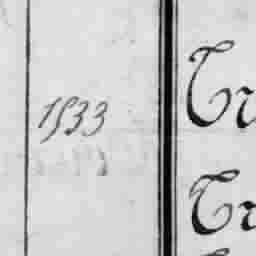 1533 Tr
Tr